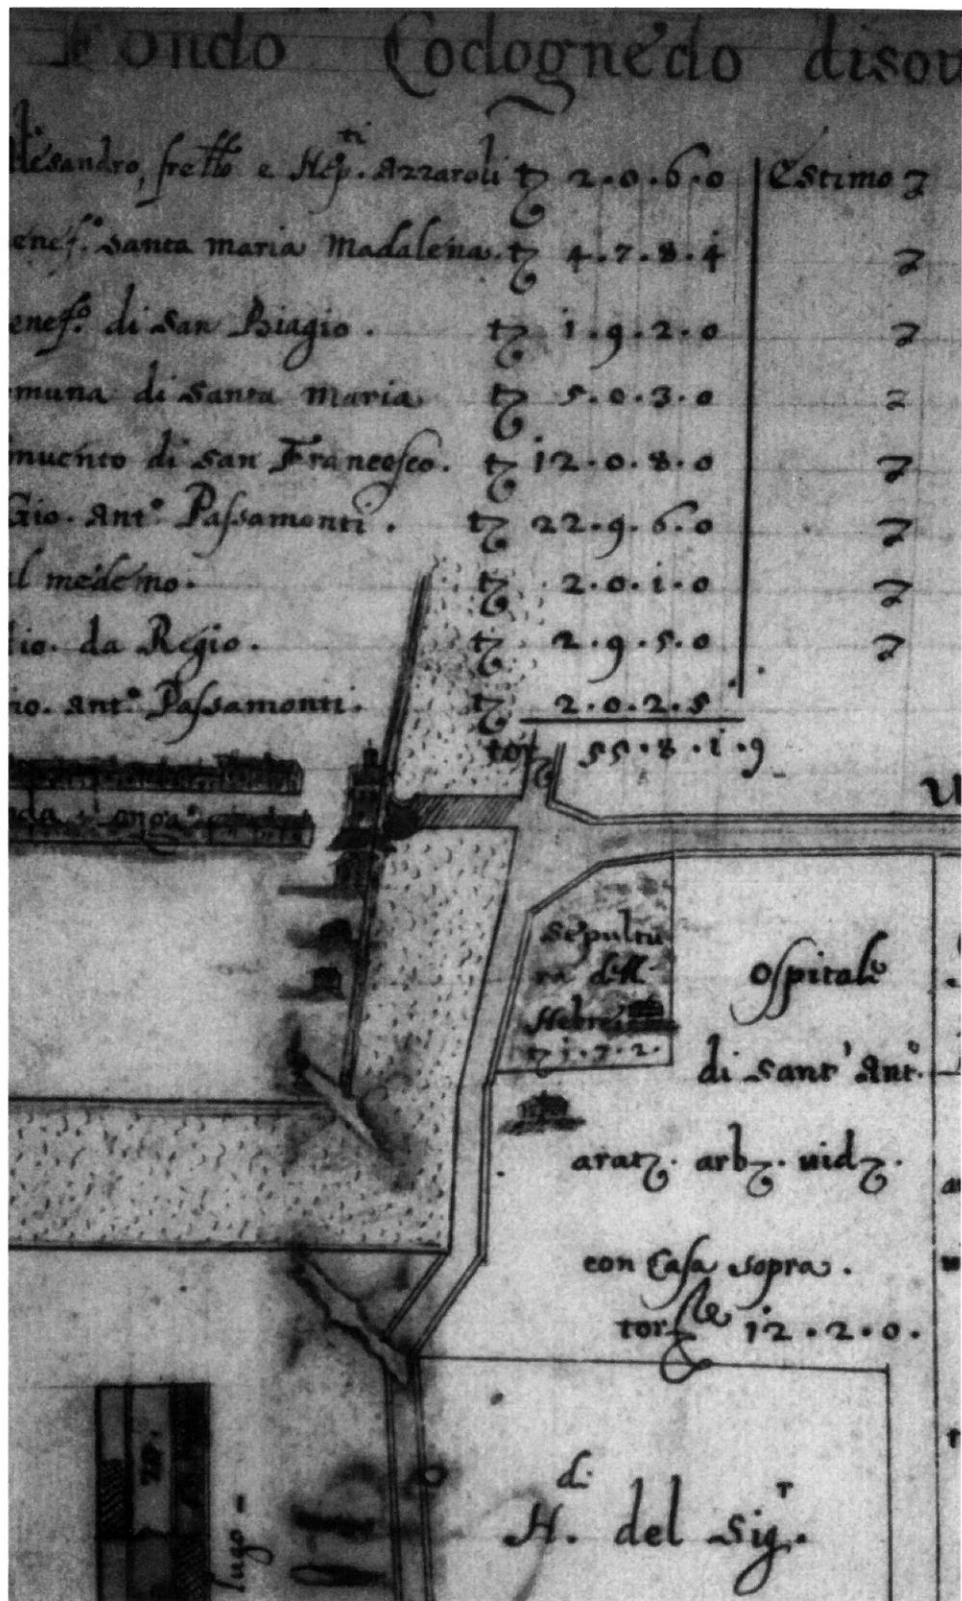 Fondo Codognedo disou
lesandro, fretto e Nepti. Azzaroli tz 2.0.6.0 Estimo
enef.o santa maria Madalena. tz 4.7.8.4
enef.o di san Biagio. tz 1.9.2.0
muna di santa maria tz 5.0.3.0
nuento di san Francesco. tz 12.0.8.0
Gio. Ant.o Passamonti. tz 22.9.6.0
il medemo. tz 2.0.1.0
tio. da Regio. tz 2.9.5.0
io. ant.o Passamonti. tz 2.0.2.5
tor 55.8.1.9
sepultu
ra dell
Hebrei
tz 1.7.2.
Ospitale
di sant' Ant.o
aratz. arbz. uidz.
con Casa sopra.
tor.le 12.2.0.
lugo
H.di del Sig.r